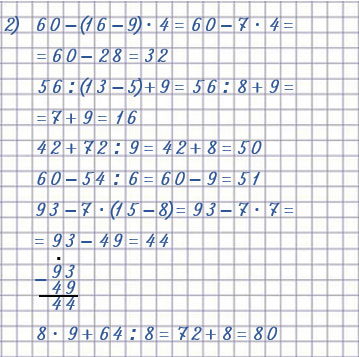 2) 60 – (16 – 9) · 4 = 60 – 7 · 4 =
= 60 – 28 = 32
56 : (13 – 5) + 9 = 56 : 8 + 9 =
= 7 + 9 = 16
42 + 72 : 9 = 42 + 8 = 50
60 – 54 : 6 = 60 – 9 = 51
93 – 7 · (15 – 8) = 93 – 7 · 7 =
= 93 – 49 = 44
– 93
49
44
8 · 9 + 64 : 8 = 72 + 8 = 80